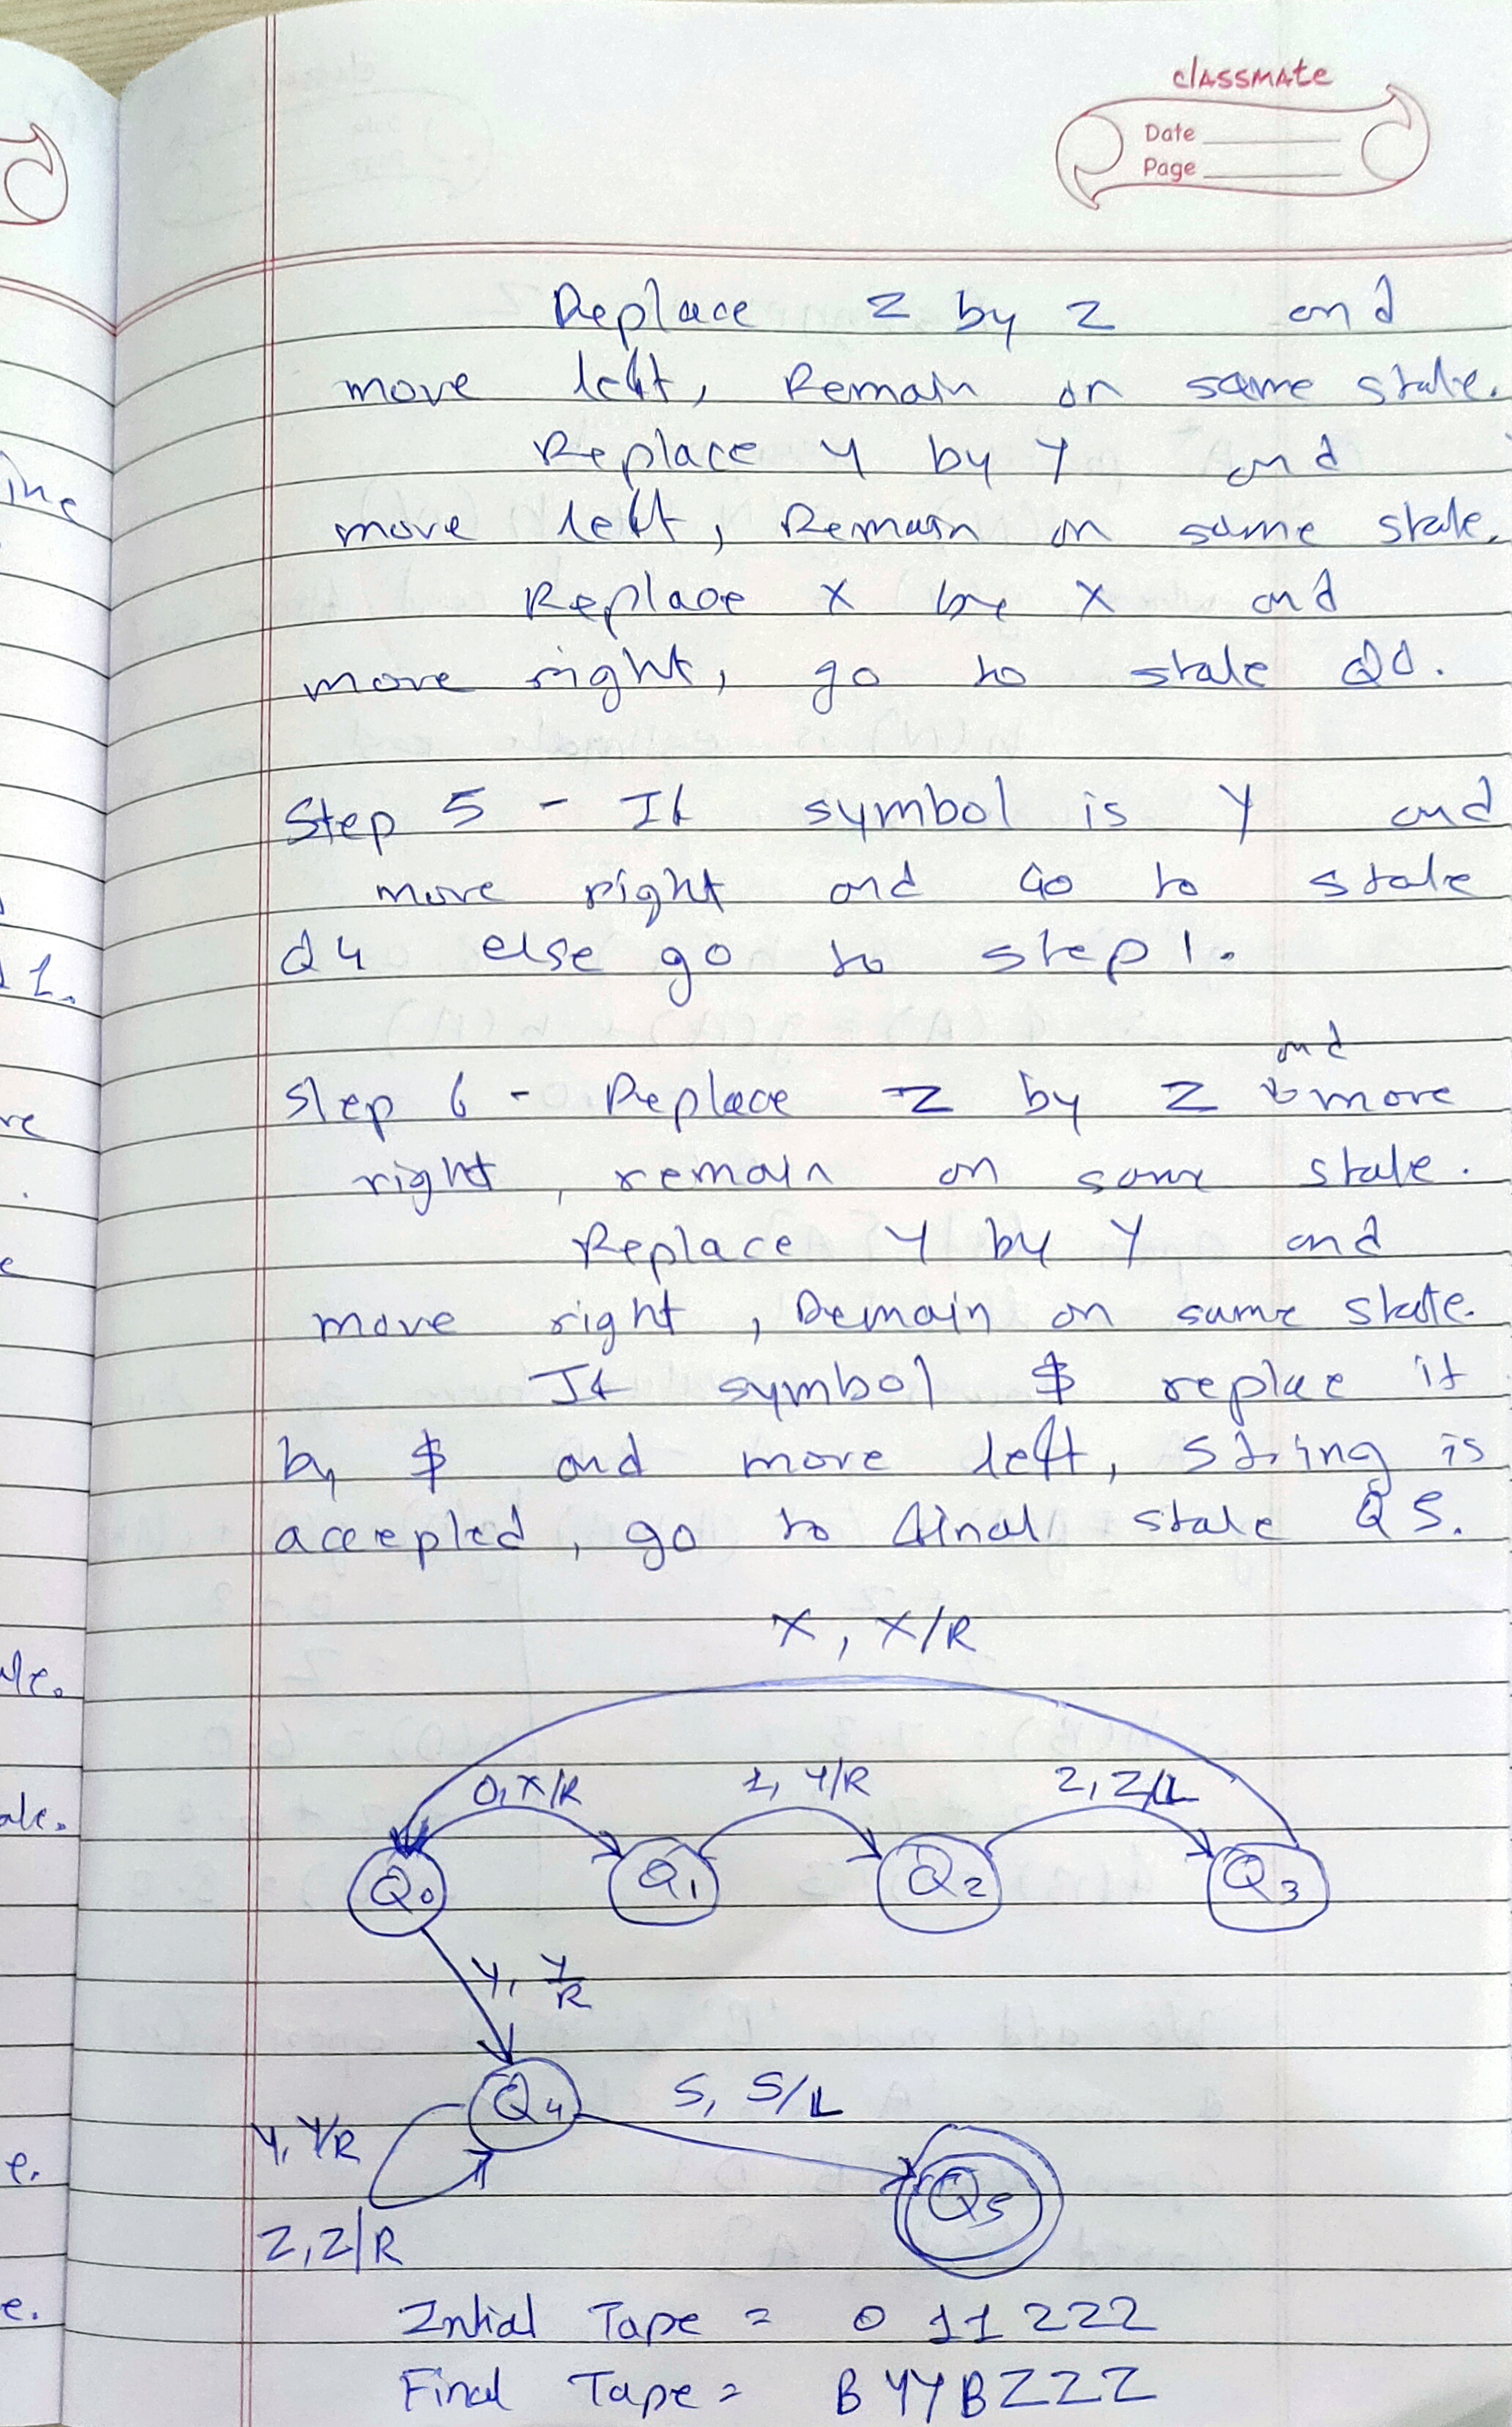 classmate
Date
Page
Replace z by z and
move left, Remain on same state.
Replace y by y and
move left, Remain on same state.
Replace X by X and
move right, go to state Q0.
Step 5 - If symbol is Y and
move right and Go to state
Q4 else go to step 1.
and
Step 6 - Replace Z by Z move
right, remain on same state.
Replace Y by Y and
move right, Remain on same state.
If symbol $ replace it
by $ and move left, string is
accepted, go to final state Q5.
X, X/R
0, X/R 1, Y/R 2, Z/L
Q0 Q1 Q2 Q3
Y, Y/R
Q4 S, S/L
Y, Y/R
Q5
Z, Z/R
Intial Tape = 0 11 222
Final Tape = B YY B ZZZ
ine
1.
re
e
ale.
e.
e.